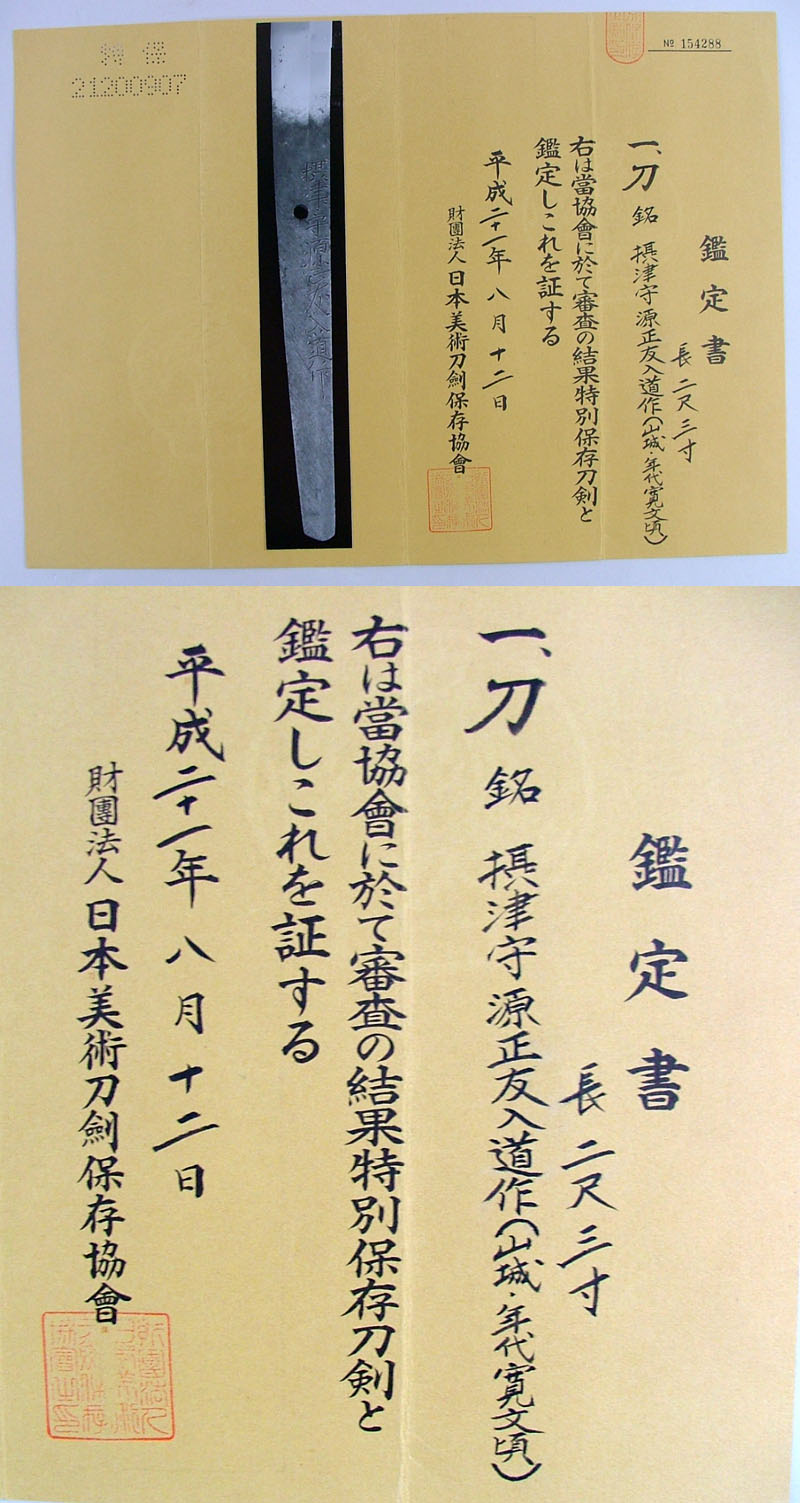 特保
21200907
№ 154288
鑑定書
長 二尺三寸
一、刀 銘 摂津守源正友入道作(山城・年代寛文頃)
右は當協會に於て審査の結果特別保存刀剣と
鑑定しこれを証する
平成二十一年 八月十二日
財團法人 日本美術刀劍保存協會
鑑定書
長 二尺三寸
一、刀 銘 摂津守源正友入道作(山城・年代寛文頃)
右は當協會に於て審査の結果特別保存刀剣と
鑑定しこれを証する
平成二十一年 八月十二日
財團法人 日本美術刀劍保存協會